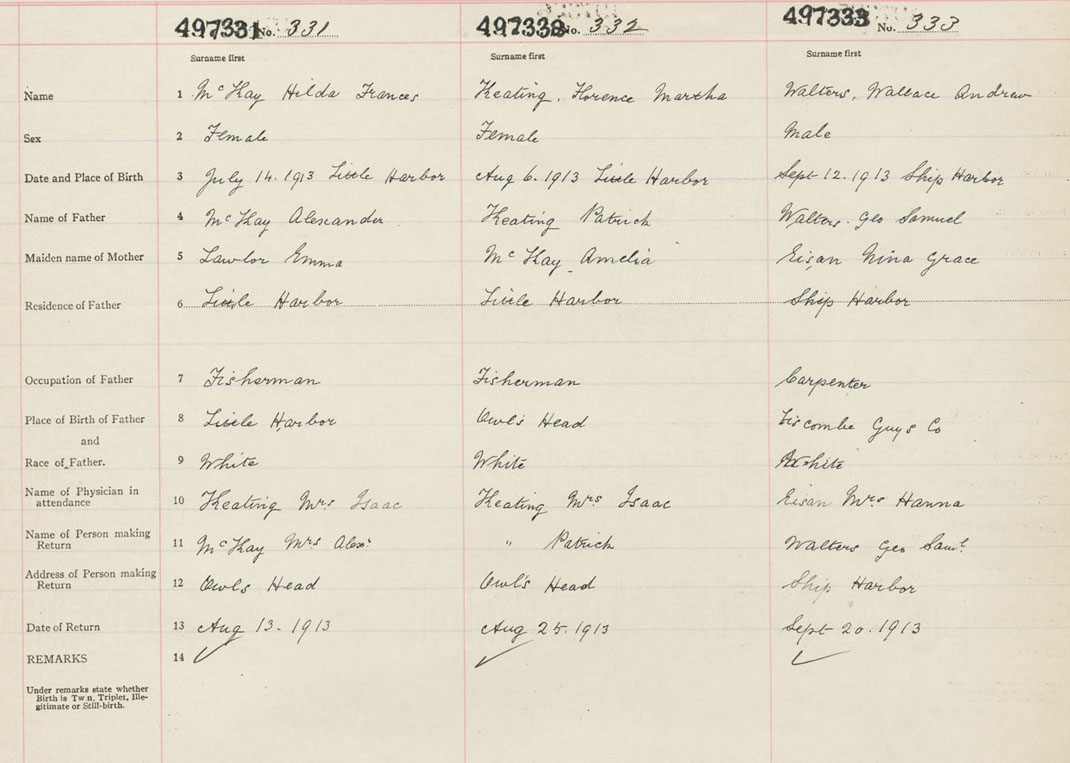 497331 No. 331 497332 No. 332 497333 No. 333
Surname first Surname first Surname first
Name 1 McKay Hilda Frances Keating, Florence Martha Walters, Wallace Andrew
Sex 2 Female Female Male
Date and Place of Birth 3 July 14. 1913 Little Harbor Aug 6. 1913 Little Harbor Sept 12. 1913 Ship Harbor
Name of Father 4 McKay Alexander Keating Patrick Walters. Geo Samuel
Maiden name of Mother 5 Lawlor Emma McKay Amelia Eisan Nina Grace
Residence of Father 6 Little Harbor Little Harbor Ship Harbor
Occupation of Father 7 Fisherman Fisherman Carpenter
Place of Birth of Father 8 Little Harbor Owl's Head Liscombe Guys Co
and
Race of Father. 9 White White White
Name of Physician in
attendance 10 Keating Mrs Isaac Keating Mrs. Isaac Eisan Mrs. Hanna
Name of Person making
Return 11 McKay Mrs Alexr " Patrick Walters Geo Saml.
Address of Person making
Return 12 Owls Head Owl's Head Ship Harbor
Date of Return 13 Aug 13. 1913 Aug 25. 1913 Sept 20. 1913
REMARKS 14 ✓ ✓ ✓
Under remarks state whether
Birth is Twn, Triplet, Ille-
gitimate or Still-birth.